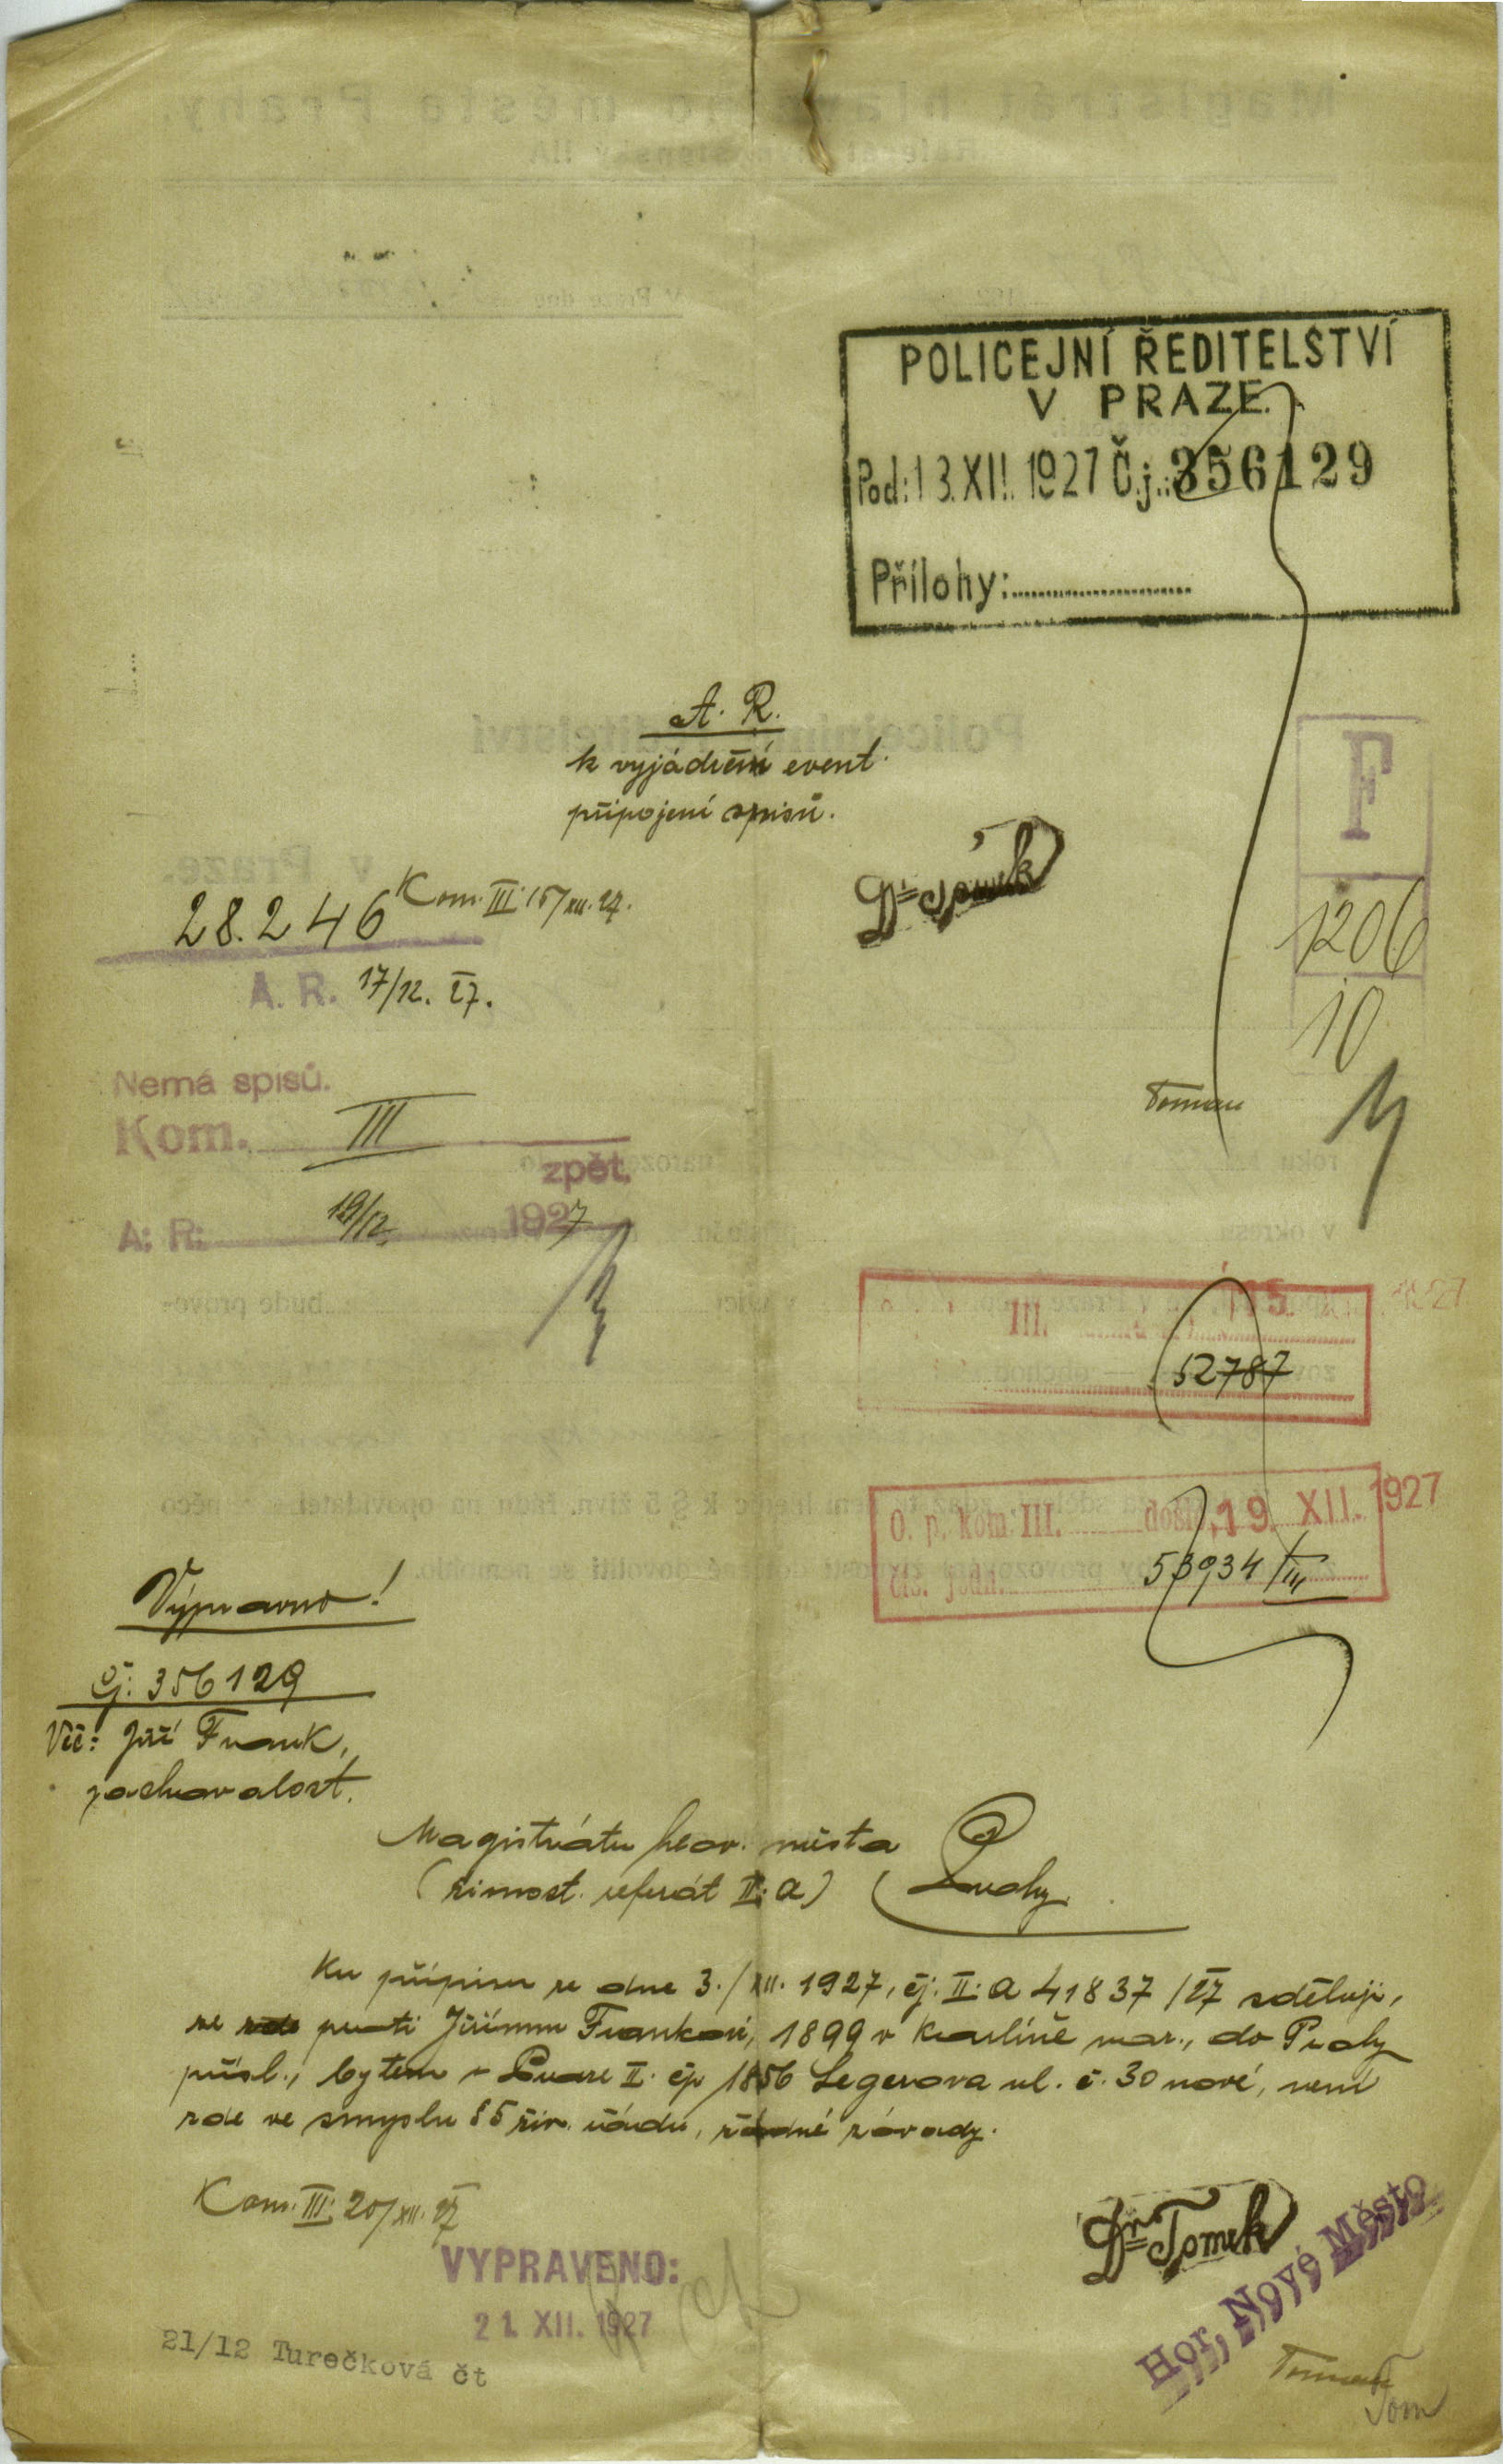 POLICEJNÍ ŘEDITELSTVÍ
V PRAZE.
Pod: 13.XII.1927 Č.j.: 356129
Přílohy:
A. R.
k vyjádření event.
připojení spisů.
Dr Tomek
F
1206
10
28.246 Kom. III. 15/XII.27.
A. R. 17/12. 27.
Nemá spisů.
Kom. III
zpět.
A: R: 19/12. 1927
Toman
III. 15. 1927
52787
O. p. kom III. došlo 19. XII. 1927
čís. jedn. 53934/III
Výpravno!
Čj: 356129
Věc: Jiří Frank,
zachovalost.
Magistrátu hlav. města
(živnost. referát II: a) Prahy
Ku přípisu ze dne 3./XII. 1927, čj: II: a 41837/27 sděluji,
že zde proti Jiřímu Frankovi, 1899 v Karlíně nar., do Prahy
přísl., bytem v Praze II. čp 1856 Legerova ul. č. 30 nové, není
zde ve smyslu § 5 živ. řádu, žádné závady.
Kom. III. 20/XII. 27
Dr Tomek
VYPRAVENO:
21. XII. 1927
Hor. Nové Město
21/12 Turečková čt
Toman
Tom